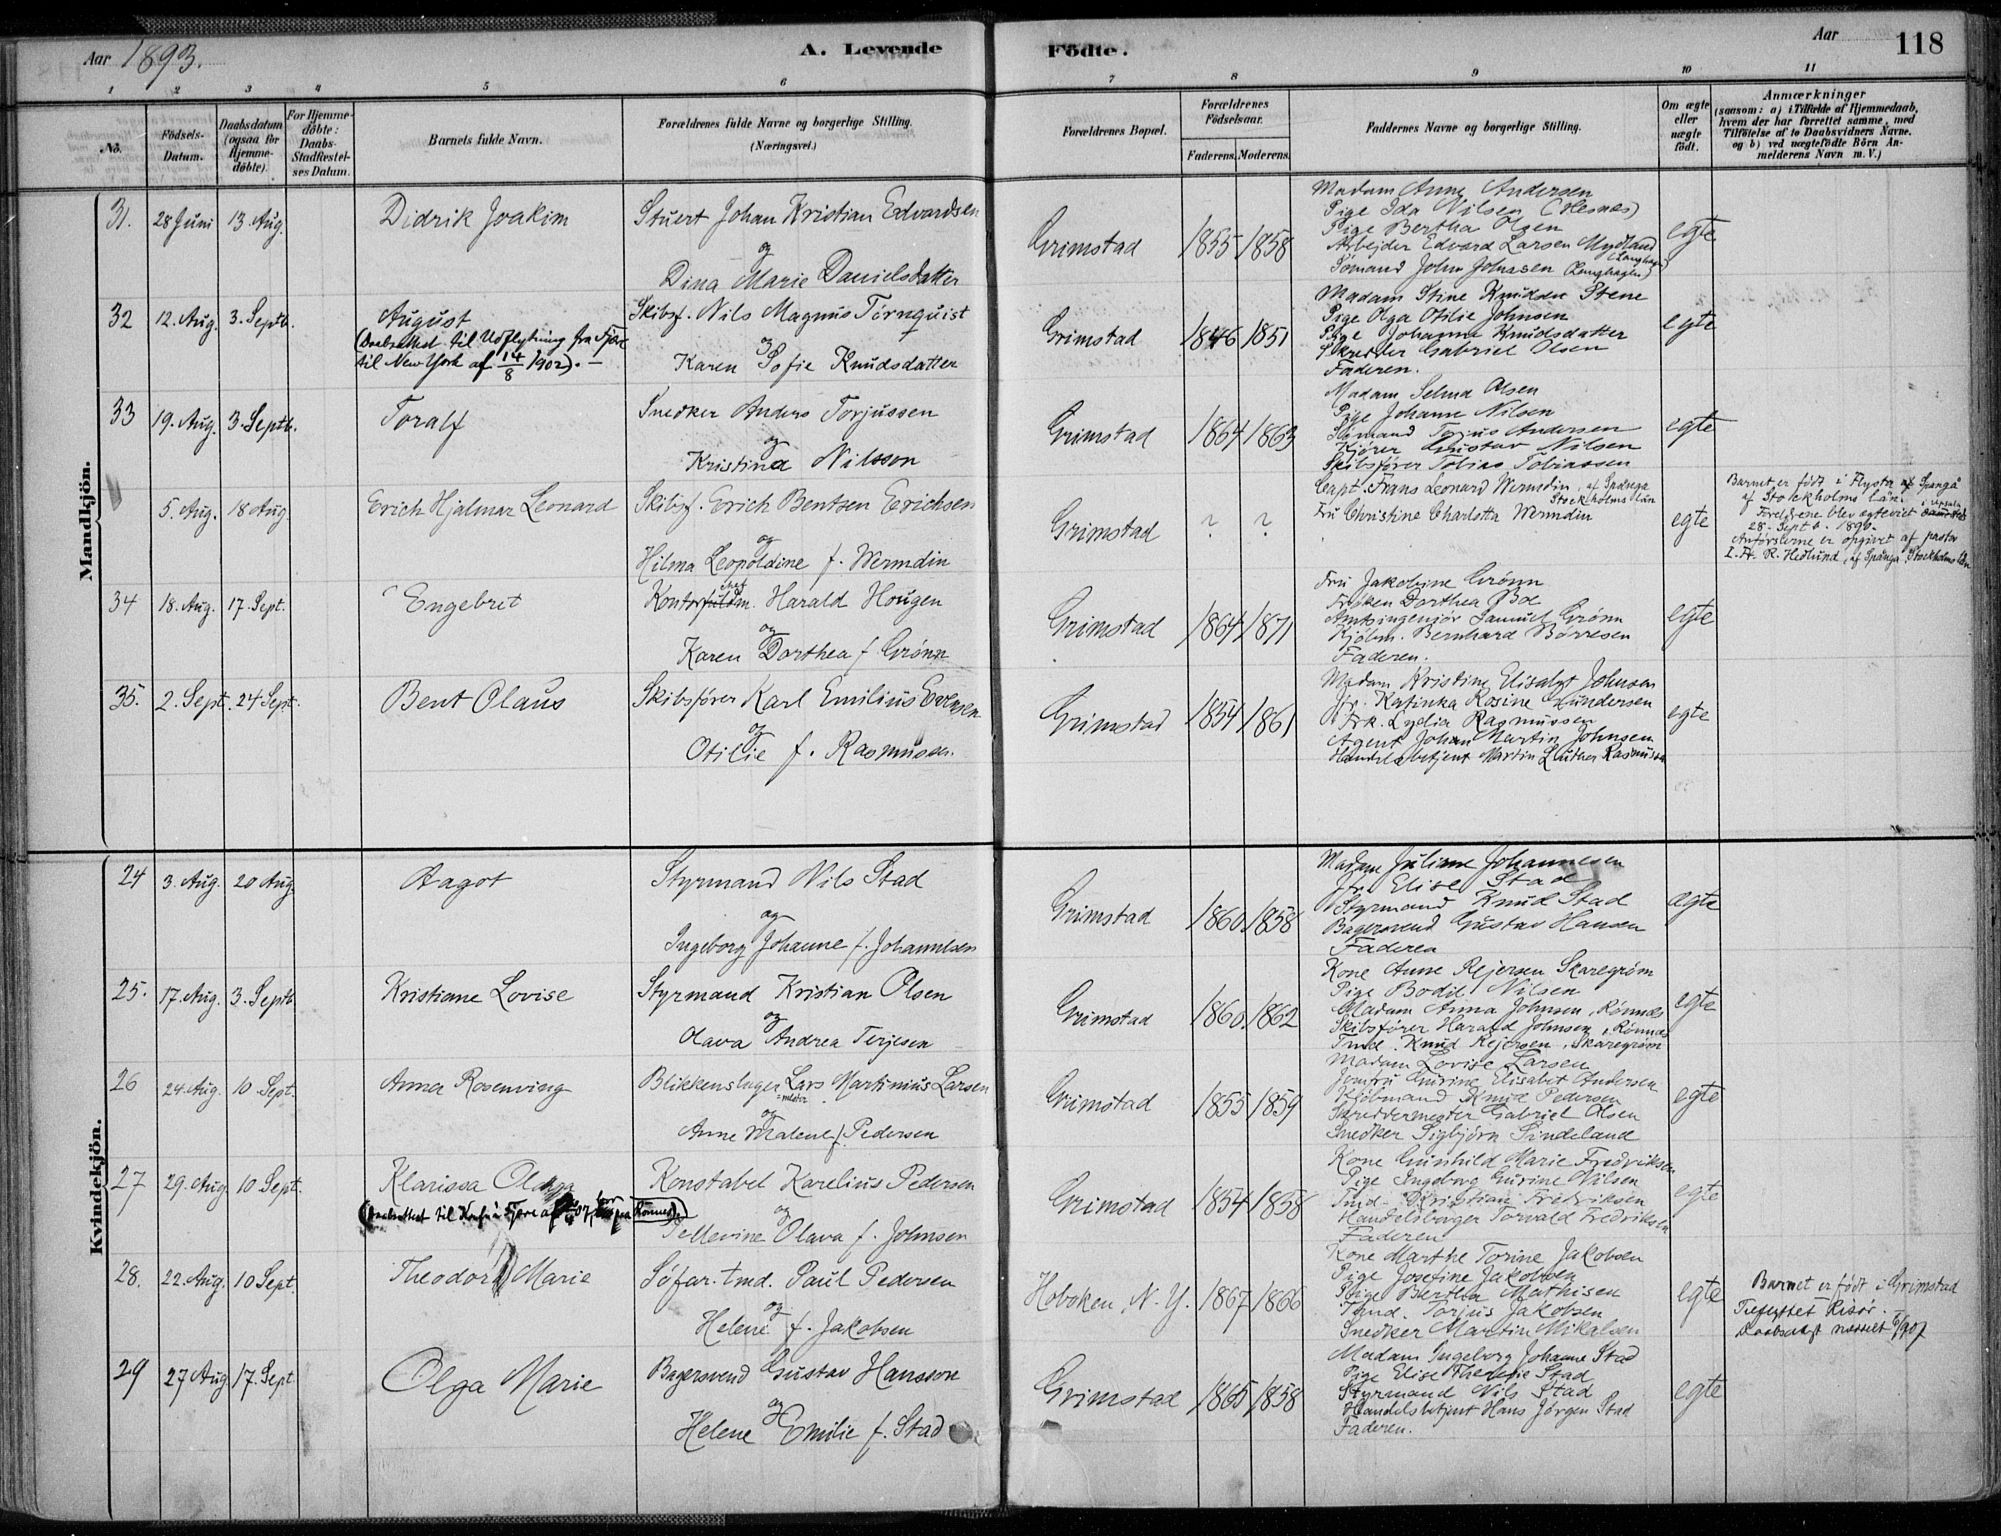 Aar 1893.
A. Levende Födte.
Aar
118
1 2 3 4 5 6 7 8 9 10 11
No.
Födsels-Datum.
Daabsdatum (ogsaa for Hjemme-døbte).
For Hjemme-døbte: Daabs-Stadfæstel-ses Datum.
Barnets fulde Navn.
Forældrenes fulde Navne og borgerlige Stilling. (Næringsvei.)
Forældrenes Bopæl.
Forældrenes Födselsaar.
Faderens. Moderens.
Faddernes Navne og borgerlige Stilling.
Om ægte eller uægte født.
Anmærkninger
(saasom: a) i Tilfælde af Hjemmedaab,
hvem der har forrettet samme, med
Tilföielse af to Daabsvidners Navne.
og b) ved uægtefödte Börn An-
melderens Navn m. V.)
Mandkjön.
31. 28 Juni 13. Aug. Didrik Joakim
Stuert Johan Kristian Edvardsen
og
Dina Marie Danielsdatter
Grimstad 1855 1858
Madam Anne Andersen
Pige Ida Nilsen (Hesnes)
Pige Bertha Olsen
Arbejder Edvard Larsen Mydland
(Langhagen)
Sømand John Johnsen (Langhagen)
egte
32 12. Aug. 3. Septb. August
(Daabsattest til Udflytning fra Fjære
til New York af 14/8 1902). —
Skibsf. Nils Magnus Törnquist
og
Karen Sofie Knudsdatter
Grimstad 1846 1851
Madam Stine Knudsen Stene
Pige Olga Otilie Johnsen
Pige Johanna Knudsdatter
Skredder Gabriel Olsen
Faderen.
egte
33 19. Aug. 3. Septb. Toralf
Snedker Anders Torjussen
og
Kristina Nilsson
Grimstad 1864 1863
Madam Selma Olsen
Pige Johanne Nilsen
Sömand Torjus Andersen
Kjører Gustav Nilsen
Skibsfører Tobias Tobiassen
egte
5. Aug. 18 Aug. Erich Hjalmar Leonard
Skibsf. Erich Bentsen Erichsen
og
Hilma Leopoldine f. Wermdin
Grimstad ? ?
Capt. Frans Leonard Wermdin, af Spånga
Stockholms län
Fru Christine Charlotta Wermdin
egte
Barnet er födt i Flysta af Spangå
af Stockholms Län.
Foreldrene blev egteviet i Uppsala
28. Septb. 1890.
Anförslerne er opgivet af pastor
I. Fr. R. Hedlund, af Spånga, Stockholms län
34 18. Aug. 17. Sept. Engebret
Kontorfuldm. Harald Hougen
og
Karen Dorthea f. Grønn
Grimstad 1864 1871
Fru Jakobine Grønn
Frøken Dorthea Boe
Amtsingeniør Samuel Grønn
Kjöbm. Bernhard Börresen
Faderen.
egte
35. 2. Sept. 24 Sept. Bent Olaus
Skibsfører Karl Emilius Evensen
og
Otilie f. Rasmussen
Grimstad 1854 1861
Madam Kristine Elisabet Johnsen
Jfr. Katinka Rosine Gundersen
Frk. Lydia Rasmussen
Agent Johan Martin Johnsen
Handelsbetjent Martin Luther Rasmussen
egte
Kvindekjön.
24 3. Aug. 20 Aug. Aagot
Styrmand Nils Stad
og
Ingeborg Johanne f. Johannesen
Grimstad 1860. 1858
Madam Juliane Johannesen
Jfr. Elise Stad
Styrmand Knud Stad
Bagersvend Gustav Hansen
Faderen
ægte
25. 17. Aug. 3. Septb. Kristiane Lovise
Styrmand Kristian Olsen
og
Olava Andrea Terjesen
Grimstad 1860. 1862
Kone Anne Rejersen Skaregrøm
Pige Bodil Nilsen
Madam Anna Johnsen, Rønnes
Skibsfører Harald Johnsen, Rønnes
Tmd. Knud Rejersen, Skaregrøm
egte
26 24. Aug. 10 Sept. Anna Rosenving
Blikkenslager Lars Martinius Larsen
=mester
og
Anne Malene f. Pedersen
Grimstad 1855 1859
Madam Lovise Larsen
Jomfru Gurine Elisabet Andersen
Kjöbmand Knud Pedersen
Skreddermester Gabriel Olsen
Snedker Sigbjörn Sindeland
egte
27 29. Aug. 10 Sept. Klarissa Olava
Konstabel Karelius Pedersen
og
Tellevine Olava f. Johnsen
Grimstad 1854 1858
Kone Gunhild Marie Fredriksen
Pige Ingeborg Gurine Nilsen
Tmd. Kristian Fredriksen
Handelsborger Torvald Fredriksen
Faderen
egte
28. 22. Aug. 10 Sept. Theodora Marie
Söfar. tmd. Paul Pedersen
og
Helene f. Jakobsen
Hoboken, N. Y. 1867 1866
Kone Marthe Torine Jakobsen
Pige Josefine Jakobsen
Pige Bertha Mathisen
Tmd. Torjus Jakobsen
Snedker Martin Mikalsen
egte
Barnet er født i Grimstad
29 27 Aug. 17. Sept Olga Marie
Bagersvend Gustav Hansson
og
Helene Emilie f. Stad
Grimstad 1865 1858
Madam Ingeborg Johanne Stad
Pige Elise Therese Stad
Styrmand Nils Stad
Handelsbetjent Hans Jörgen Stad
Faderen.
egte